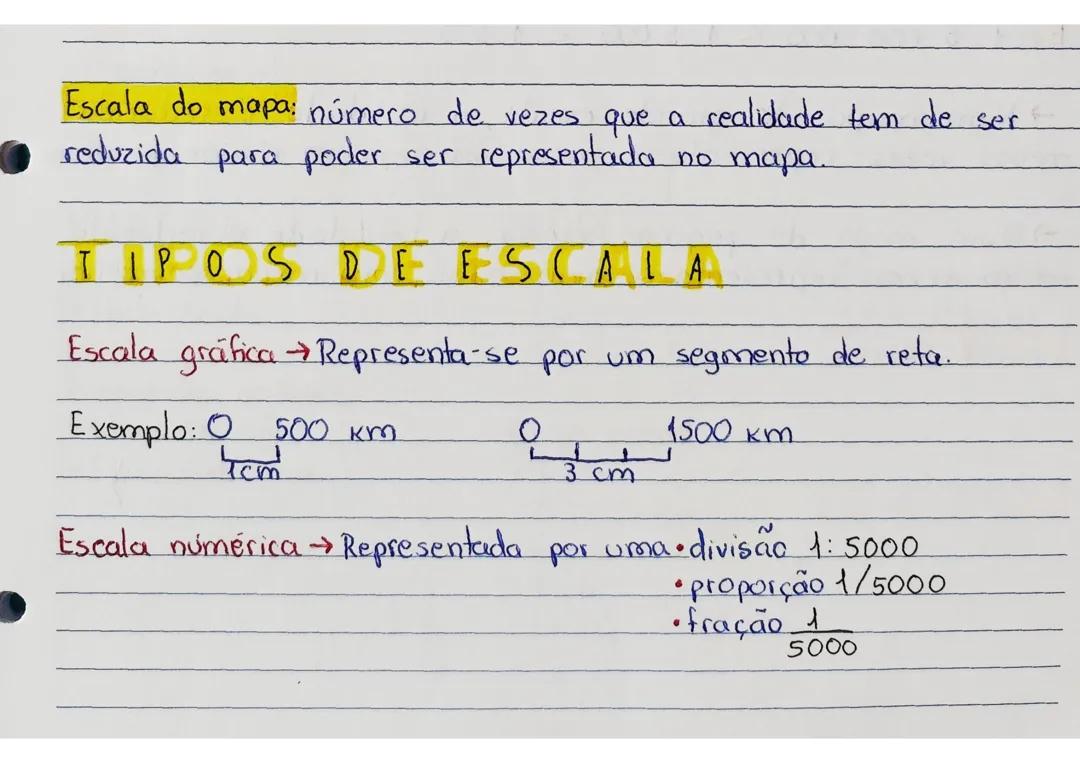 Escala do mapa: número de vezes que a realidade tem de ser
reduzida para poder ser representada no mapa.
TIPOS DE ESCALA
Escala gráfica → Representa-se por um segmento de reta.
Exemplo: 0 500 km 0 1500 km
1cm 3 cm
Escala númérica → Representada por uma • divisão 1: 5000
• proporção 1/5000
• fração 1
5000